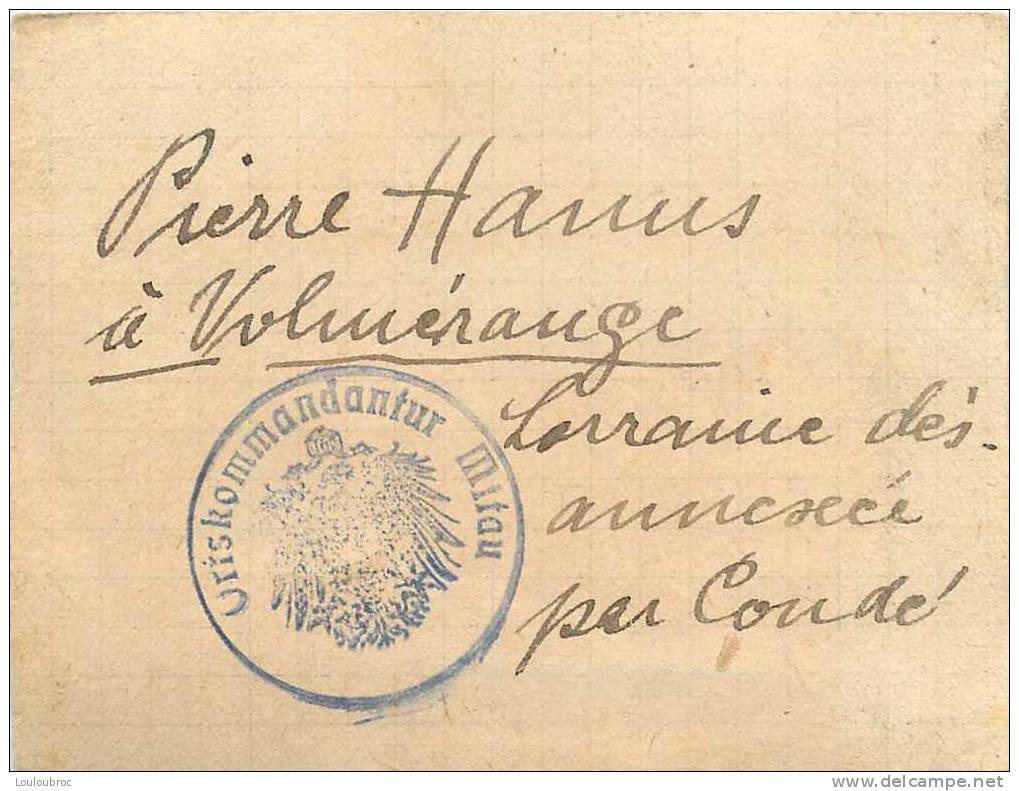 Pierre Hanus
à Volmérange
Lorraine dés-
annexée
par Condé
Ortskommandantur Mitau
Louloubroc
www.delcampe.net